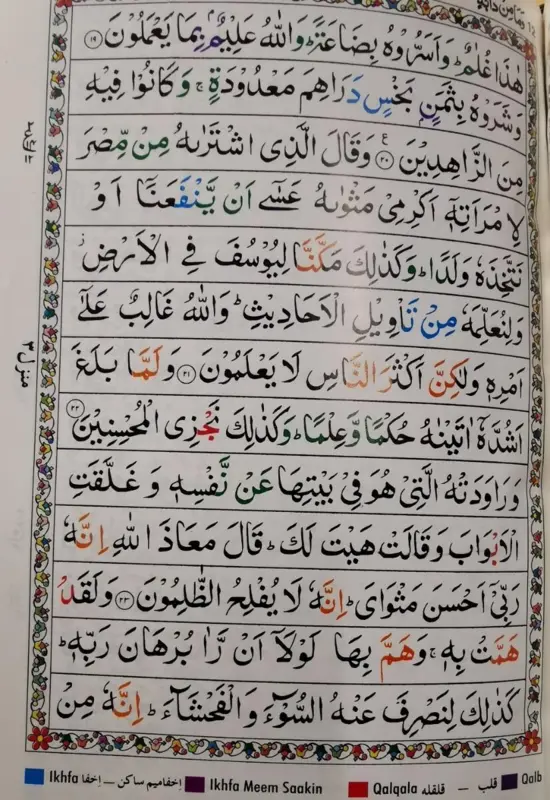 ١٢ وَمَا مِنْ دَآبَّةٍ
هٰذَا غُلٰمٌ ؕ وَاَسَرُّوْهُ بِضَاعَةً ؕ وَاللّٰهُ عَلِيْمٌۢ بِمَا يَعْمَلُوْنَ ﴿١٩﴾
وَشَرَوْهُ بِثَمَنٍۭ بَخْسٍ دَرَاهِمَ مَعْدُوْدَةٍ ۚ وَكَانُوْا فِيْهِ
مِنَ الزَّاهِدِيْنَ ﴿٢٠﴾ وَقَالَ الَّذِى اشْتَرٰىهُ مِنْ مِّصْرَ
لِامْرَاَتِهٖۤ اَكْرِمِىْ مَثْوٰىهُ عَسٰٓى اَنْ يَّنْفَعَنَاۤ اَوْ
نَتَّخِذَهٗ وَلَدًا ؕ وَكَذٰلِكَ مَكَّنَّا لِيُوْسُفَ فِى الْاَرْضِ ۫
وَلِنُعَلِّمَهٗ مِنْ تَاْوِيْلِ الْاَحَادِيْثِ ؕ وَاللّٰهُ غَالِبٌ عَلٰٓى
اَمْرِهٖ وَلٰكِنَّ اَكْثَرَ النَّاسِ لَا يَعْلَمُوْنَ ﴿٢١﴾ وَلَمَّا بَلَغَ
اَشُدَّهٗۤ اٰتَيْنٰهُ حُكْمًا وَّعِلْمًا ؕ وَكَذٰلِكَ نَجْزِى الْمُحْسِنِيْنَ ﴿٢٢﴾
وَرَاوَدَتْهُ الَّتِىْ هُوَ فِىْ بَيْتِهَا عَنْ نَّفْسِهٖ وَ غَلَّقَتِ
الْاَبْوَابَ وَقَالَتْ هَيْتَ لَكَ ؕ قَالَ مَعَاذَ اللّٰهِ اِنَّهٗ
رَبِّىْۤ اَحْسَنَ مَثْوَاىَ ؕ اِنَّهٗ لَا يُفْلِحُ الظّٰلِمُوْنَ ﴿٢٣﴾ وَلَقَدْ
هَمَّتْ بِهٖ ۚ وَهَمَّ بِهَا لَوْلَاۤ اَنْ رَّاٰ بُرْهَانَ رَبِّهٖ ؕ
كَذٰلِكَ لِنَصْرِفَ عَنْهُ السُّوْٓءَ وَالْفَحْشَآءَ ؕ اِنَّهٗ مِنْ
منزل ٣
Ikhfa اخفا — اخفا میم ساکن Ikhfa Meem Saakin Qalqala قلقله — قلب Qalb